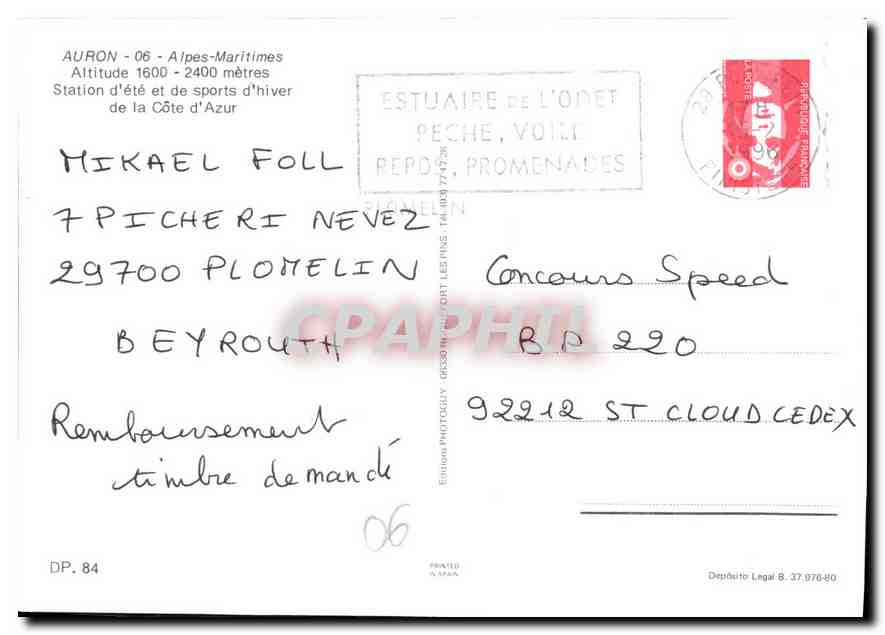 AURON - 06 - Alpes-Maritimes
Altitude 1600 - 2400 mètres
Station d'été et de sports d'hiver
de la Côte d'Azur
ESTUAIRE DE L'ODET
PECHE, VOILE
REPOS, PROMENADES
PLOMELIN
LA POSTE
REPUBLIQUE FRANÇAISE
MIKAEL FOLL
7 PICHERI NEVEZ
29700 PLOMELIN
BEYROUTH
Remboursement
timbre demandé
Editions PHOTOGUY - 06330 LES PINS - Tél.
Concours Speed
BP 220
92212 ST CLOUD CEDEX
CPAPHIL
06
DP. 84
PRINTED
IN SPAIN
Depósito Legal B. 37.976-80